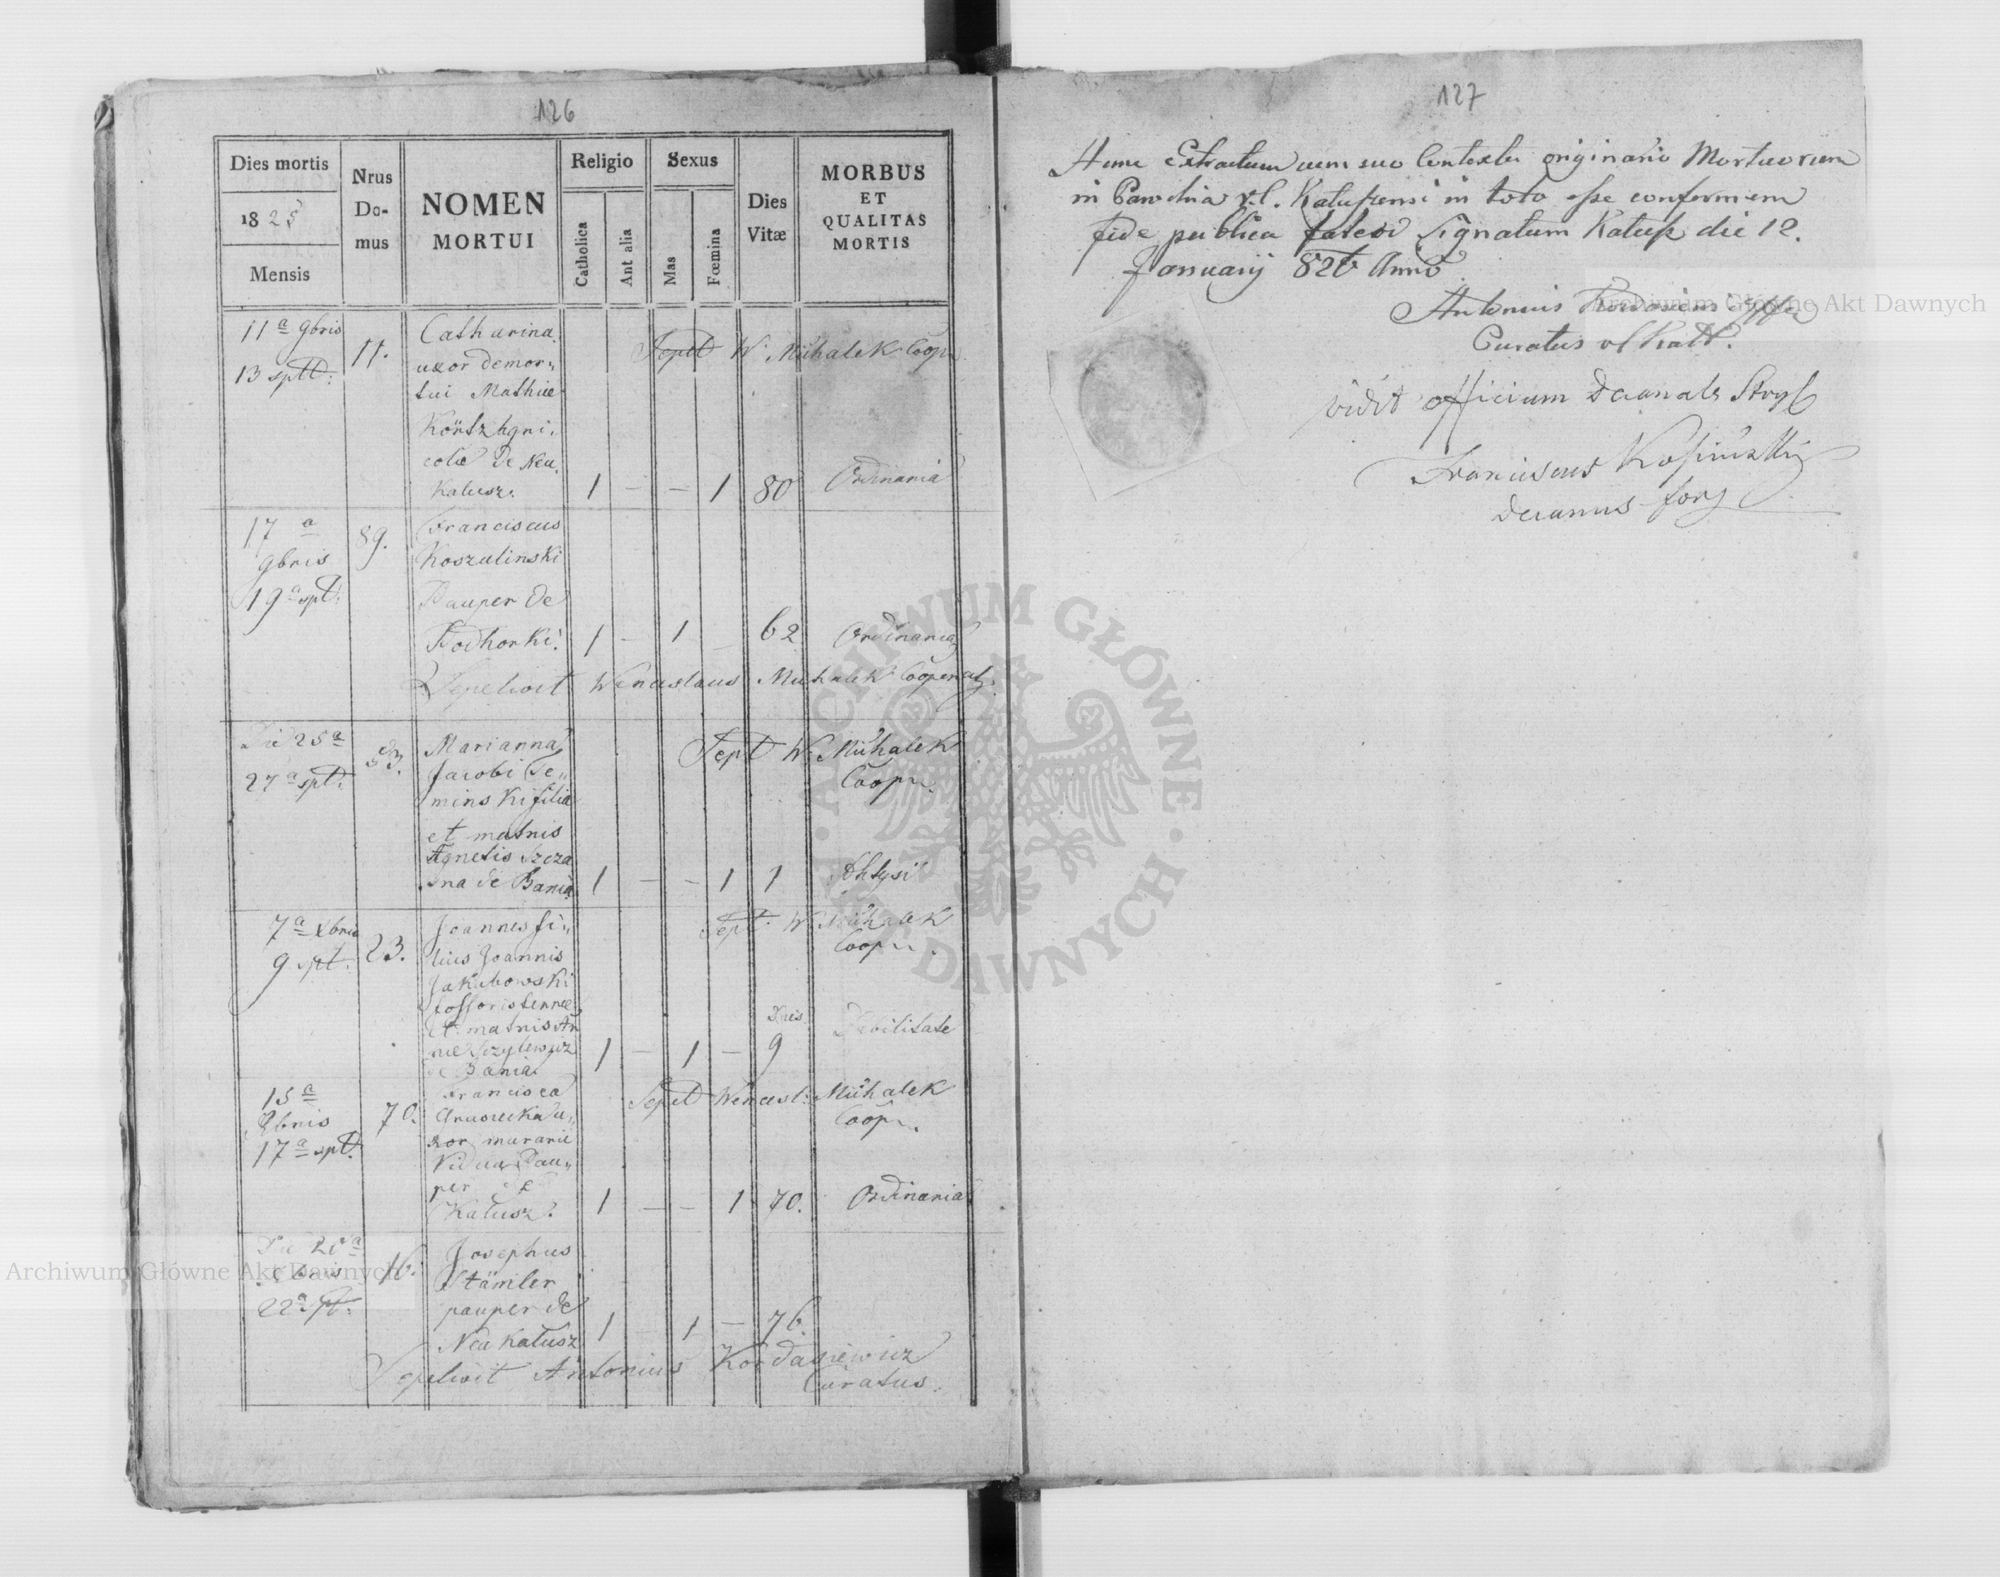 126
Dies mortis
1825
Mensis
Nrus
Do-
mus
NOMEN
MORTUI
Religio
Catholica
Aut alia
Sexus
Mas
Fœmina
Dies
Vitæ
MORBUS
ET
QUALITAS
MORTIS
11a 9bris
13 spltt:
11.
Catharina
uxor demor-
tui Mathiæ
Köntz Agri-
colæ de Neu
Kalusz.
Sepelt W. Michalek Coopr.
1 — — 1 80 Ordinaria
17a
9bris
19a splt:
89.
Franciscus
Koszulinski
Pauper de
Podhorki.
1 — 1 — 62 Ordinaria
Sepelivit Wenceslaus Michalek Cooperat.
Die 25a
27a splt:
53.
Marianna
Jacobi Se-
minski filia
et matris
Agnetis Szcza
sna de Bania
Sepelt W. Michalek
Coopr.
1 — — 1 1 Phtysi
7a Xbris
9 splt:
23.
Joannes fi-
lius Joannis
Jakubowski
fossoris terræ
et matris An
næ Szylewicz
de Bania.
Sept. W. Michalek
Coopr.
1 — 1 —
Dies
9
Debilitate
15a
Xbris
17a splt.
70.
Francisca
uxor murarii
Vidua Pau-
per de
Kalusz.
Sepelt Wencesl: Michalek
Coopr.
1 — — 1 70. Ordinaria
Die 20a
Xbris
22a splt:
16.
Josephus
Stämler
pauper de
Nea Kalusz
1 — 1 — 76.
Sepelivit Antonius Kordasiewicz
Curatus.
127
Hunc Extractum cum suo Contextu originario Mortuorum
in Parochia r.l. Kaluszensi in toto esse conformem
fide publica fateor Signatum Kalusz die 12.
Januarij 826 Anno
Antonius
Curatus
vidit officium Decanale Stryi
Franciscus
Decanus
Archiwum Główne Akt Dawnych
Archiwum Główne Akt Dawnych
ARCHIWUM GŁÓWNE · AKT DAWNYCH ·